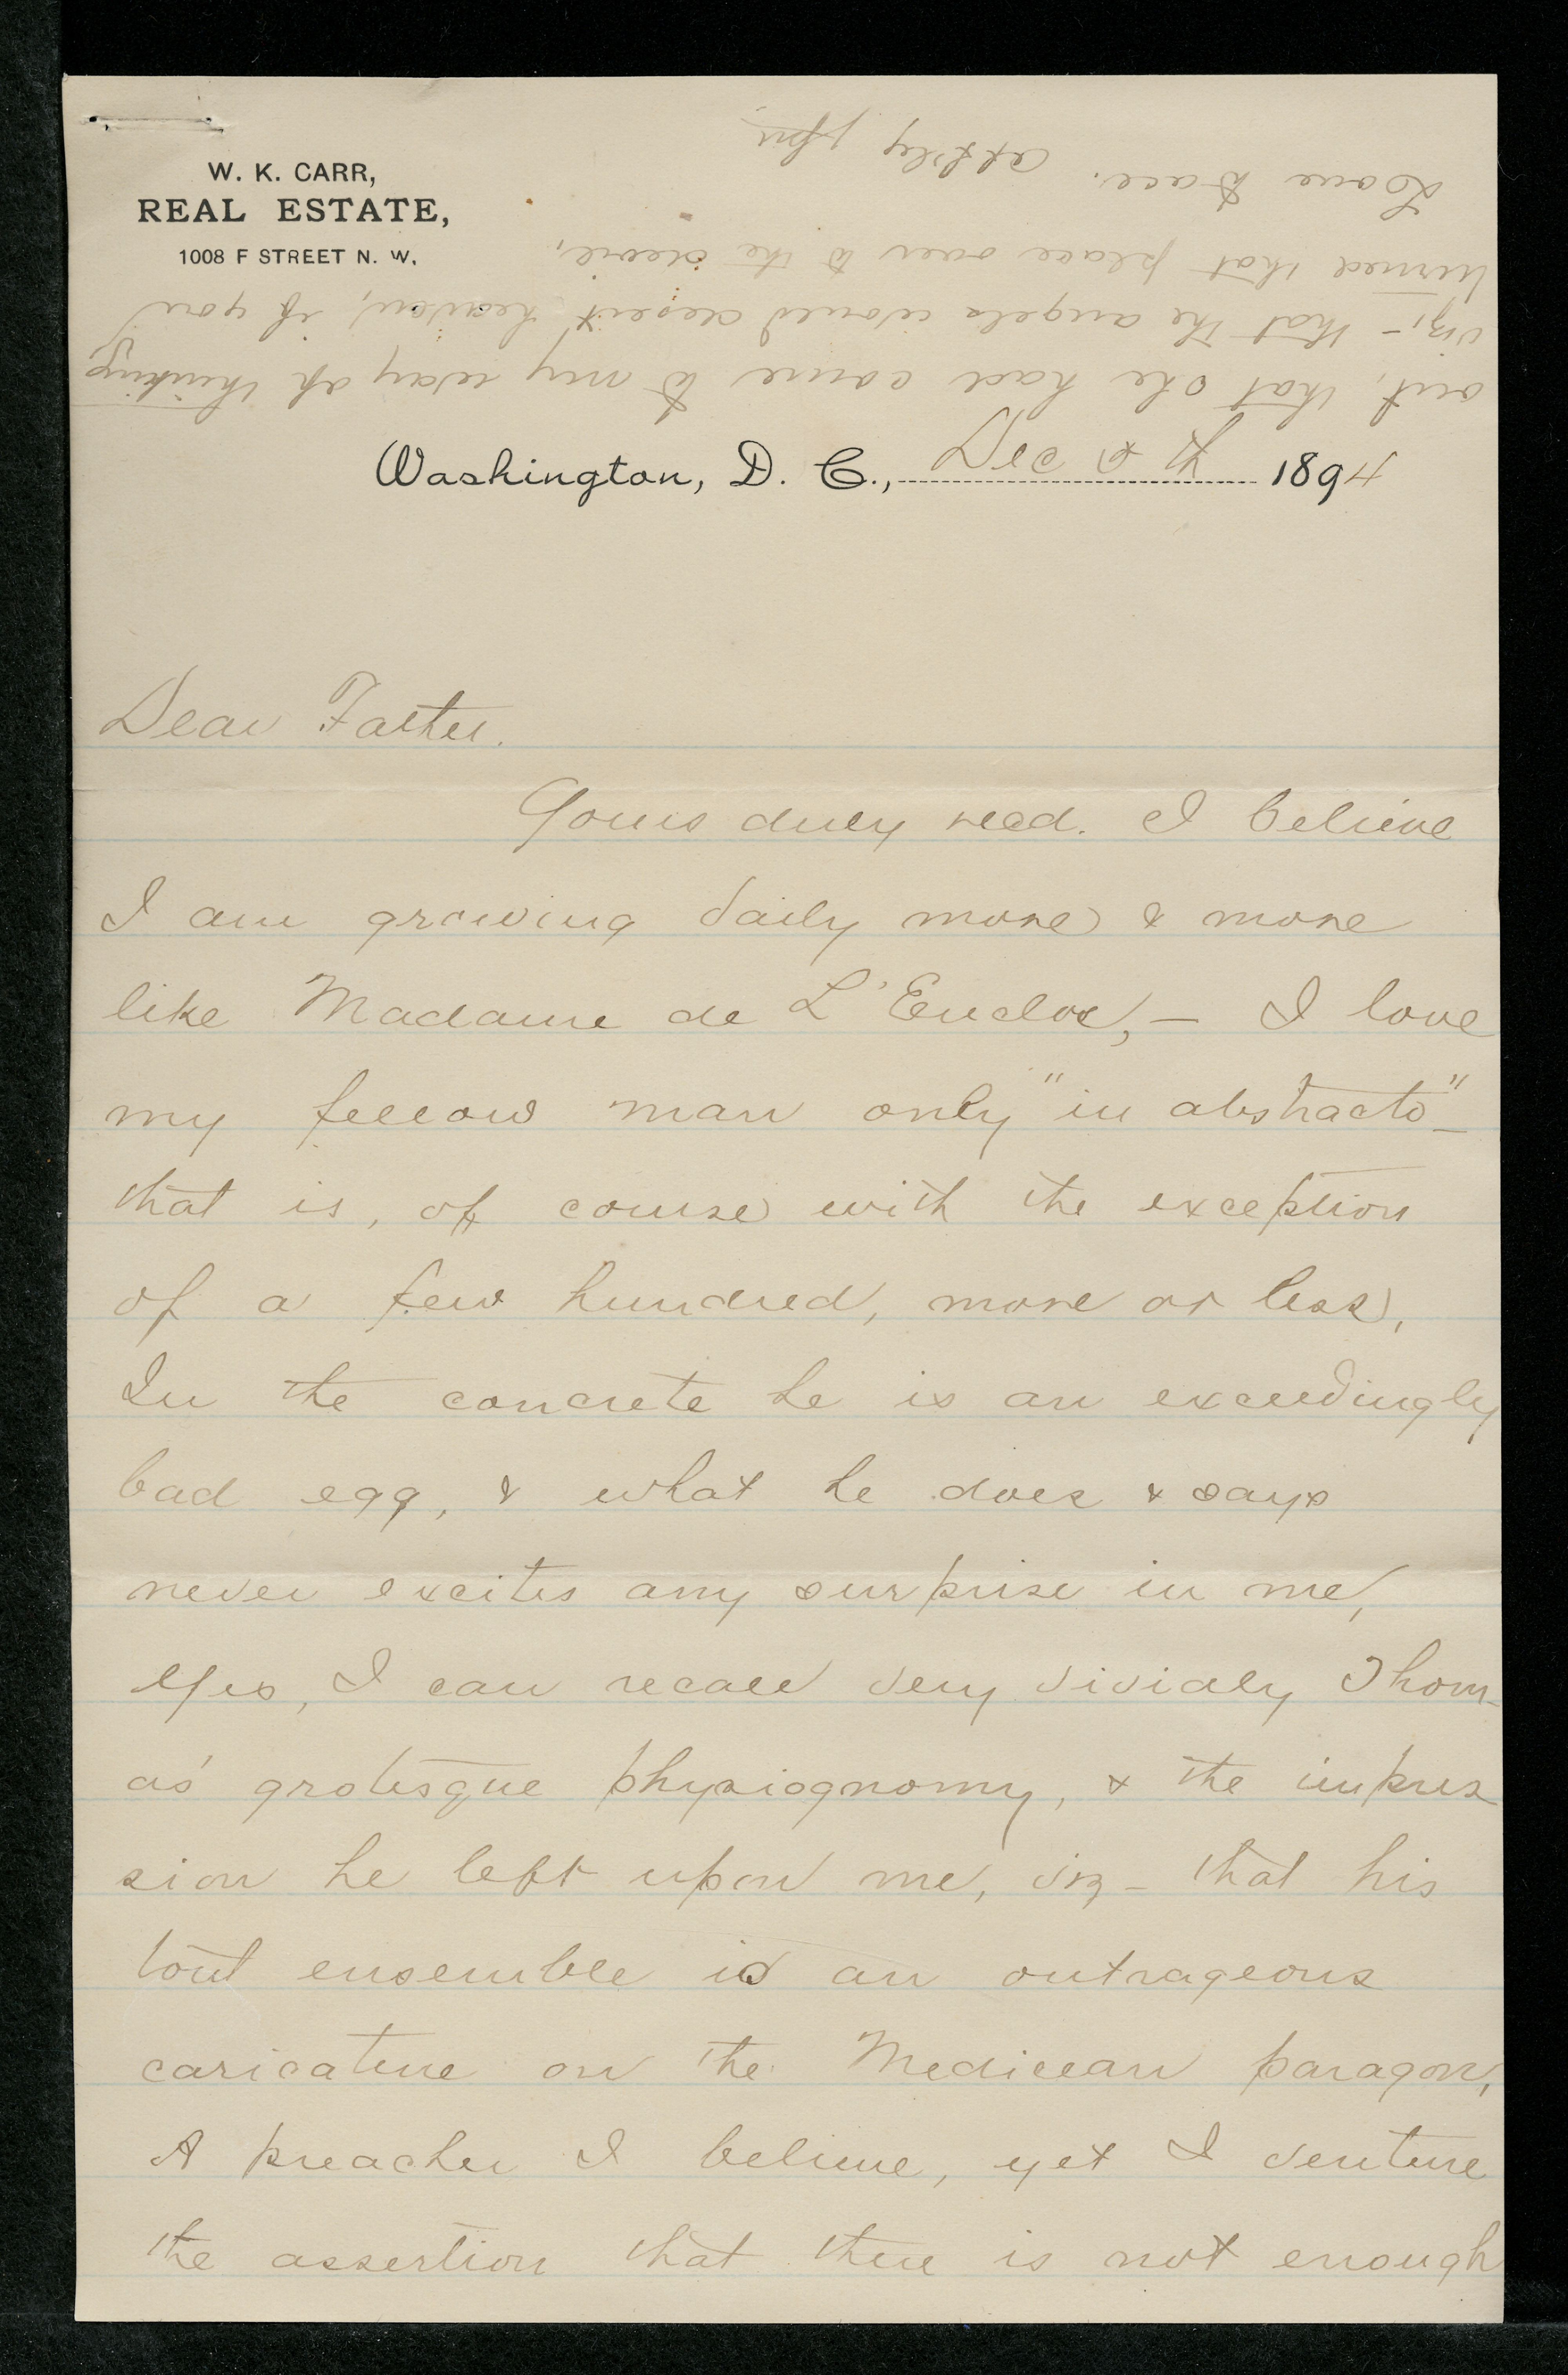 W. K. CARR,
REAL ESTATE,
1008 F STREET N. W.
Washington, D. C., Dec 1894
Dear Father.
Yours duly recd. I believe
I am growing daily more & more
like Madame de L'Enclos, – I love
my fellow man only "in abstracto" –
that is, of course with the exception
of a few hundred, more or less,
In the concrete he is an exceedingly
bad egg, & what he does & says
never excites any surprise in me,
Yes, I can recall very vividly Thom-
as' grotesque physiognomy, & the impres
sion he left upon me, viz – that his
tout ensemble is an outrageous
caricature on the Medicean paragon,
A preacher I believe, yet I venture
the assertion that there is not enough
out, that she had come to my way of thinking
viz, – that the angels would desert heaven, if you
turned that place over to the devil,
Love to all.